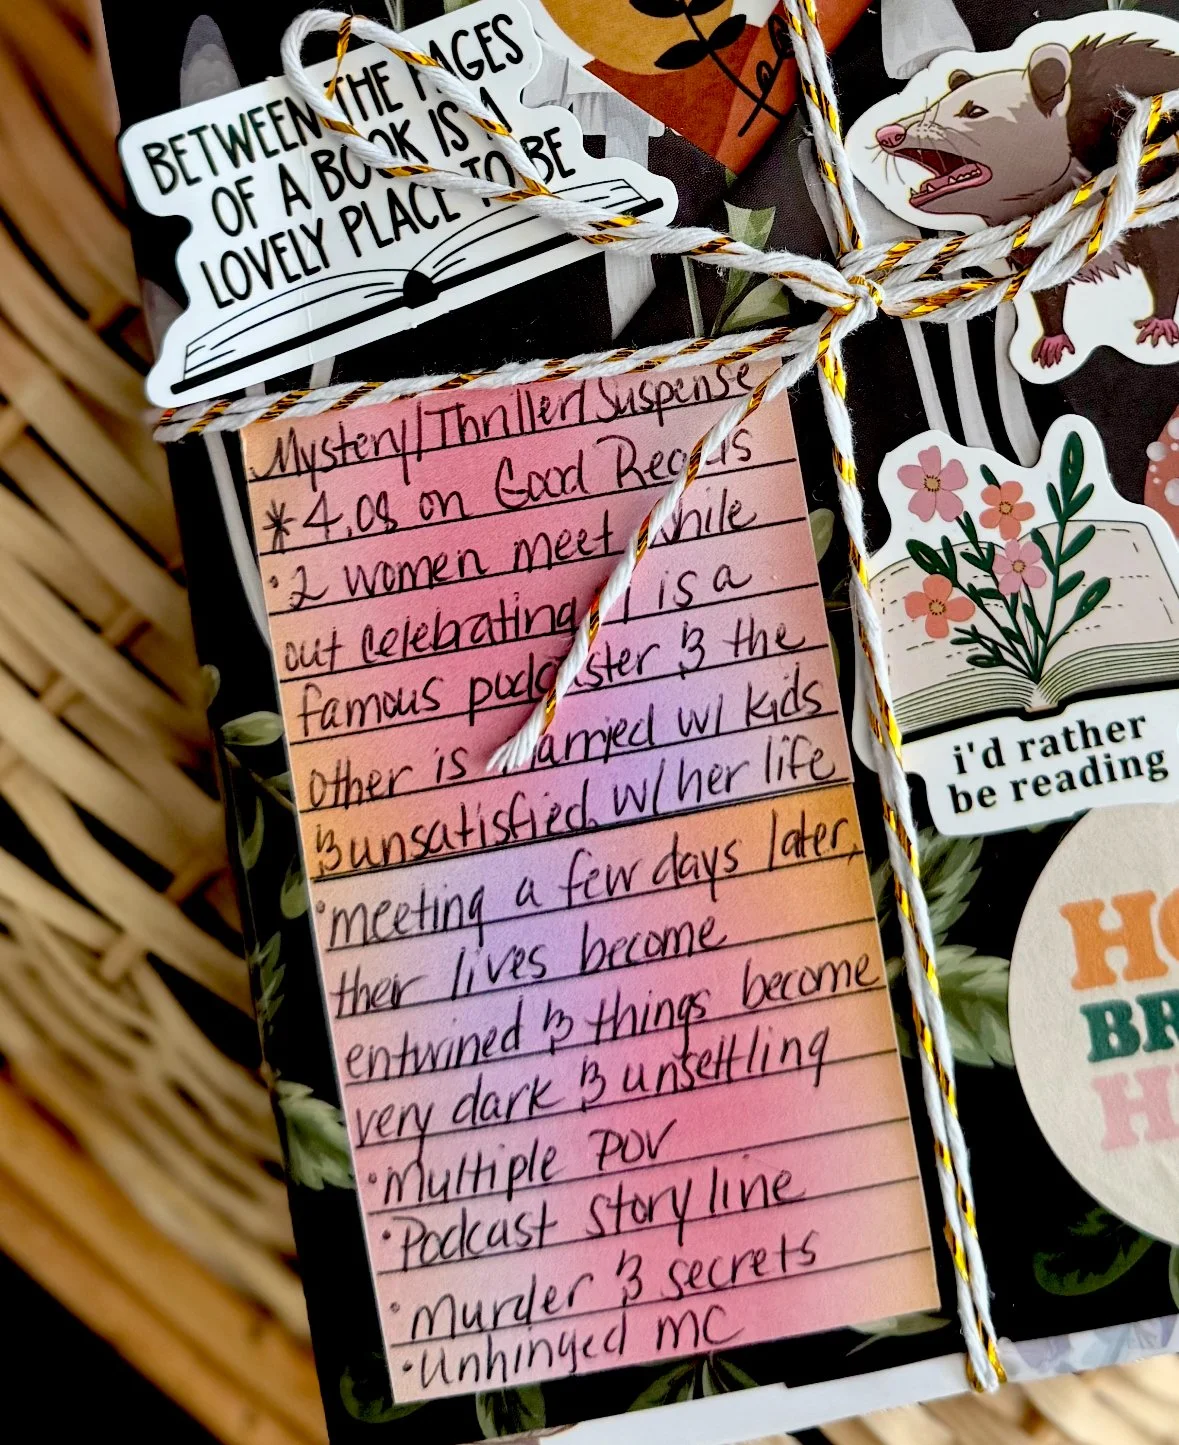 BETWEEN THE PAGES
OF A BOOK IS A
LOVELY PLACE TO BE
Mystery/Thriller/Suspense
*4.08 on Good Reads
•2 women meet while
out celebrating 1 is a
famous podcaster & the
other is married w/ kids
& unsatisfied w/ her life
•meeting a few days later,
their lives become
entwined & things become
very dark & unsettling
•Multiple POV
•Podcast story line
•Murder & secrets
•Unhinged MC
i'd rather
be reading
HO
BR
H